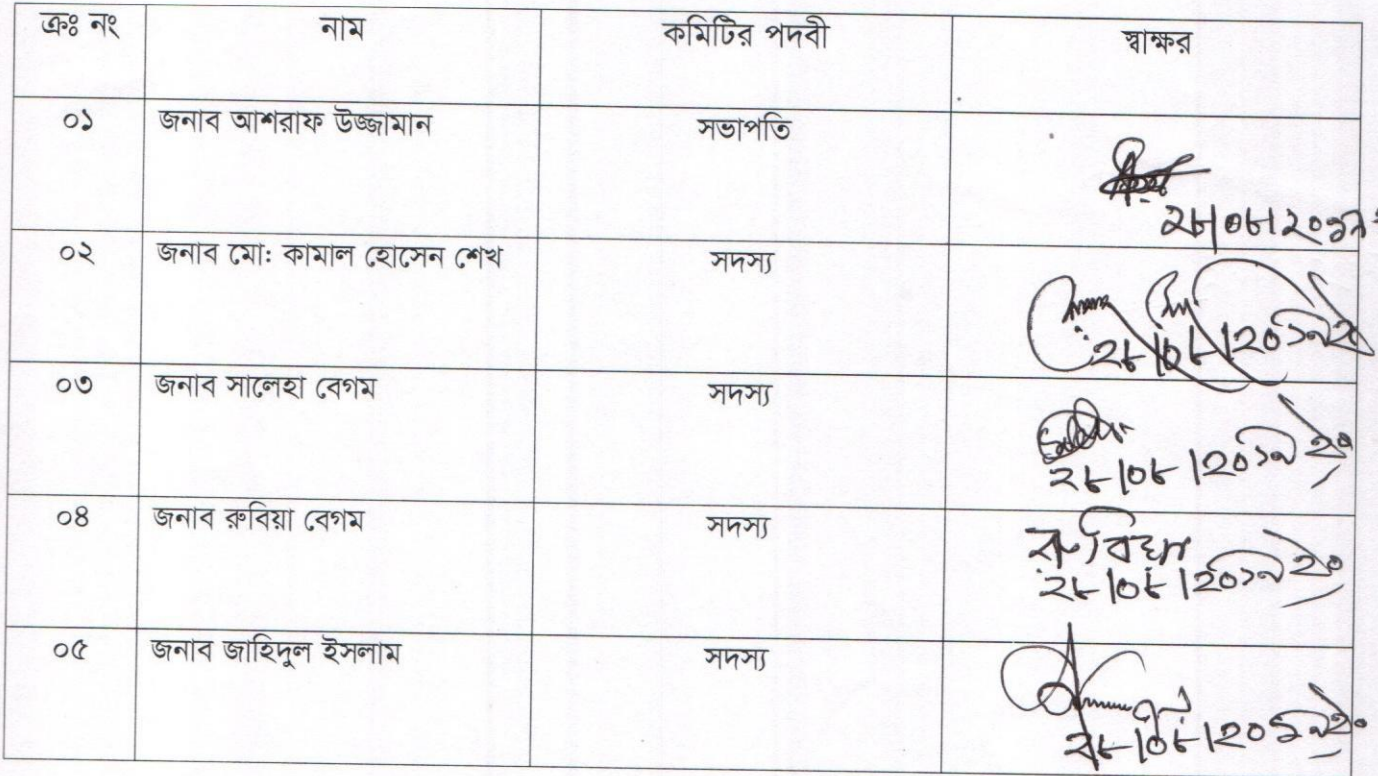 ক্রঃ নং নাম কমিটির পদবী স্বাক্ষর
০১ জনাব আশরাফ উজ্জামান সভাপতি
২৮|০৮|২০১৯
০২ জনাব মো: কামাল হোসেন শেখ সদস্য
২৮|০৮|২০১৯
০৩ জনাব সালেহা বেগম সদস্য
২৮|০৮|২০১৯
০৪ জনাব রুবিয়া বেগম সদস্য রুবিয়া
২৮|০৮|২০১৯
০৫ জনাব জাহিদুল ইসলাম সদস্য
২৮|০৮|২০১৯